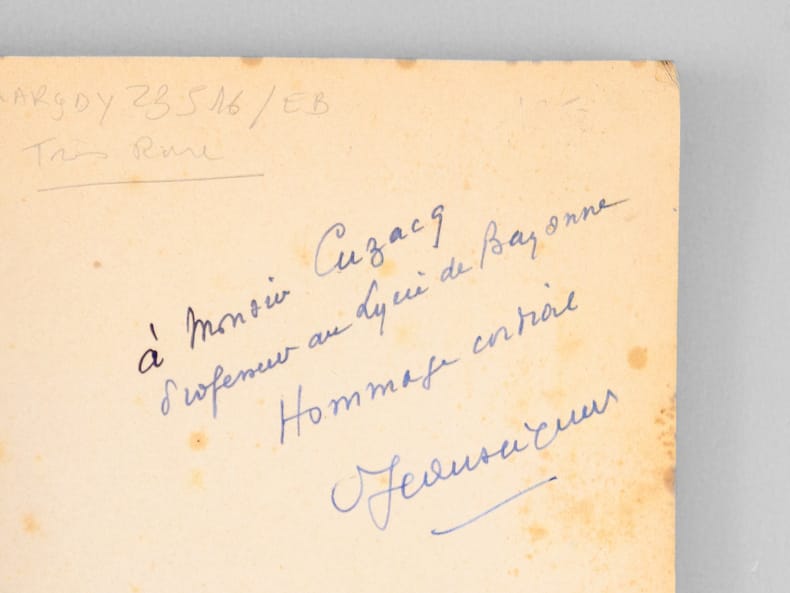 ARGDY 23516/EB
Très Rare
à Monsieur Cuzacq
Professeur au Lycée de Bayonne
Hommage cordial